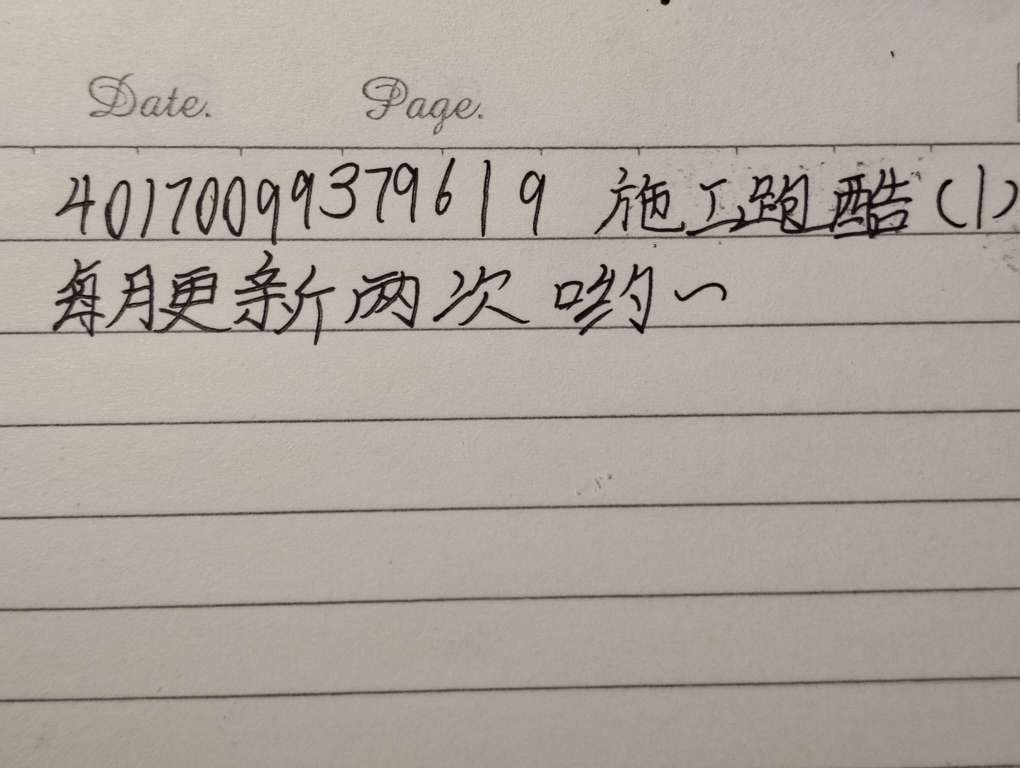 Date. Page.
40170099379619 施工跑酷(1)
每月更新两次哟~